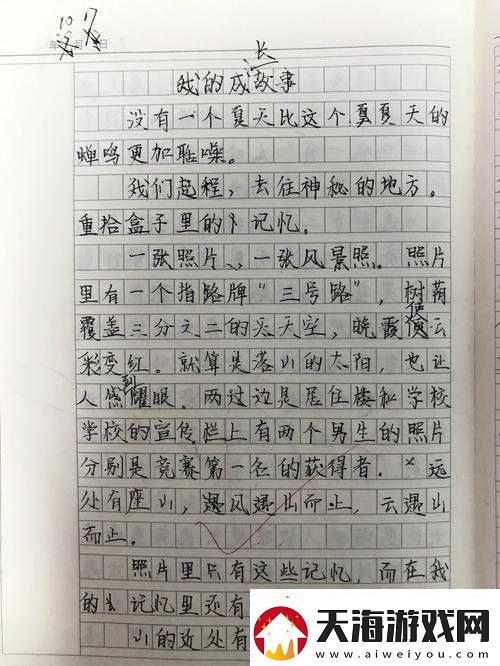 10 17
年 月 日
我的成长故事
没有一个夏天比这个夏夏天的
蝉鸣更加聒噪。
我们起程，去往神秘的地方。
重拾盒子里的记忆。
一张照片、一张风景照。照片
里有一个指路牌“三号路”，树荫
覆盖三分之二的天空，晚霞使云
彩变红。就算是落山的太阳，也让
人感到耀眼。两过边是居住楼和学校
学校的宣传栏上有两个男生的照片
分别是竞赛第一名的获得者。远
处有座山，遇风遇山而止，云遇山
而止。
照片里只有这些记忆，而在我
的记忆里还有
山的近处有
天海游戏网
www.aiweiyou.com